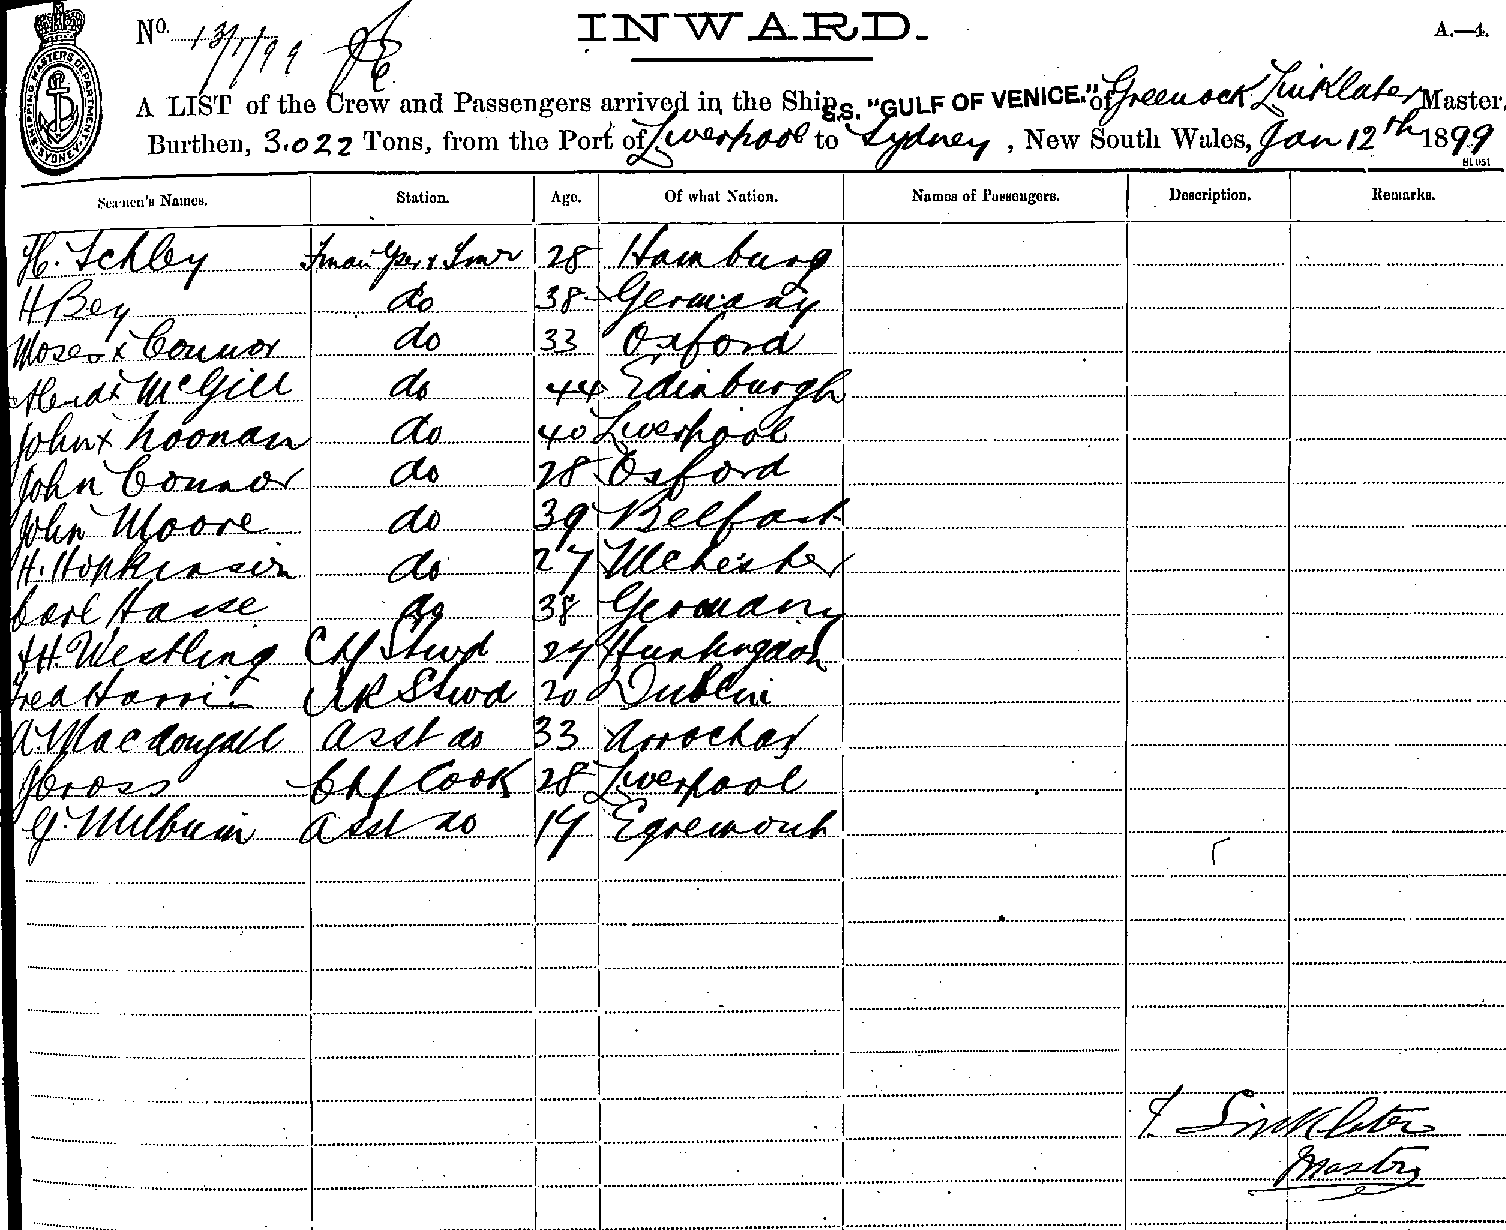 INWARD.
A.—4.
No. 13/1/99
SHIPPING MASTERS DEPARTMENT SYDNEY
A LIST of the Crew and Passengers arrived in the Ship S.S. "GULF OF VENICE." of Greenock Linklater Master,
Burthen, 3.022 Tons, from the Port of Liverpool to Sydney, New South Wales, Jan 12th 1899
Seamen's Names. Station. Age. Of what Nation. Names of Passengers. Description. Remarks.
H. Schley 28 Hamburg
H Bey do 38 Germany
Moses x Connor do 33 Oxford
McGill do 44 Edinburgh
John x Noonan do 40 Liverpool
John Connor do 28 Oxford
John Moore do 39 Belfast
H. Hopkinson do 27 Mchester
Carl Hasse do 38 Germany
H. Westling Chf Stwd 27 Huntingdon
Fred Harris Stwd 20 Dublin
A. Macdougall Asst do 33 Arrochar
Chf Cook 28 Liverpool
G. Milburn Asst do 17 Egremont
Linklater
Master